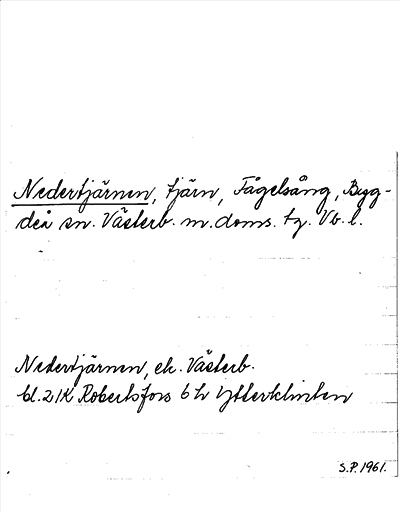 Nedertjärnen, tjärn, Fågelsång, Bygg-
deå sn. Västerb. m. doms. tg. Vb. l.
Nedertjärnen, ek. Västerb.
bl. 21K Robertsfors 6 h Ytterklinten
S.P. 1961.